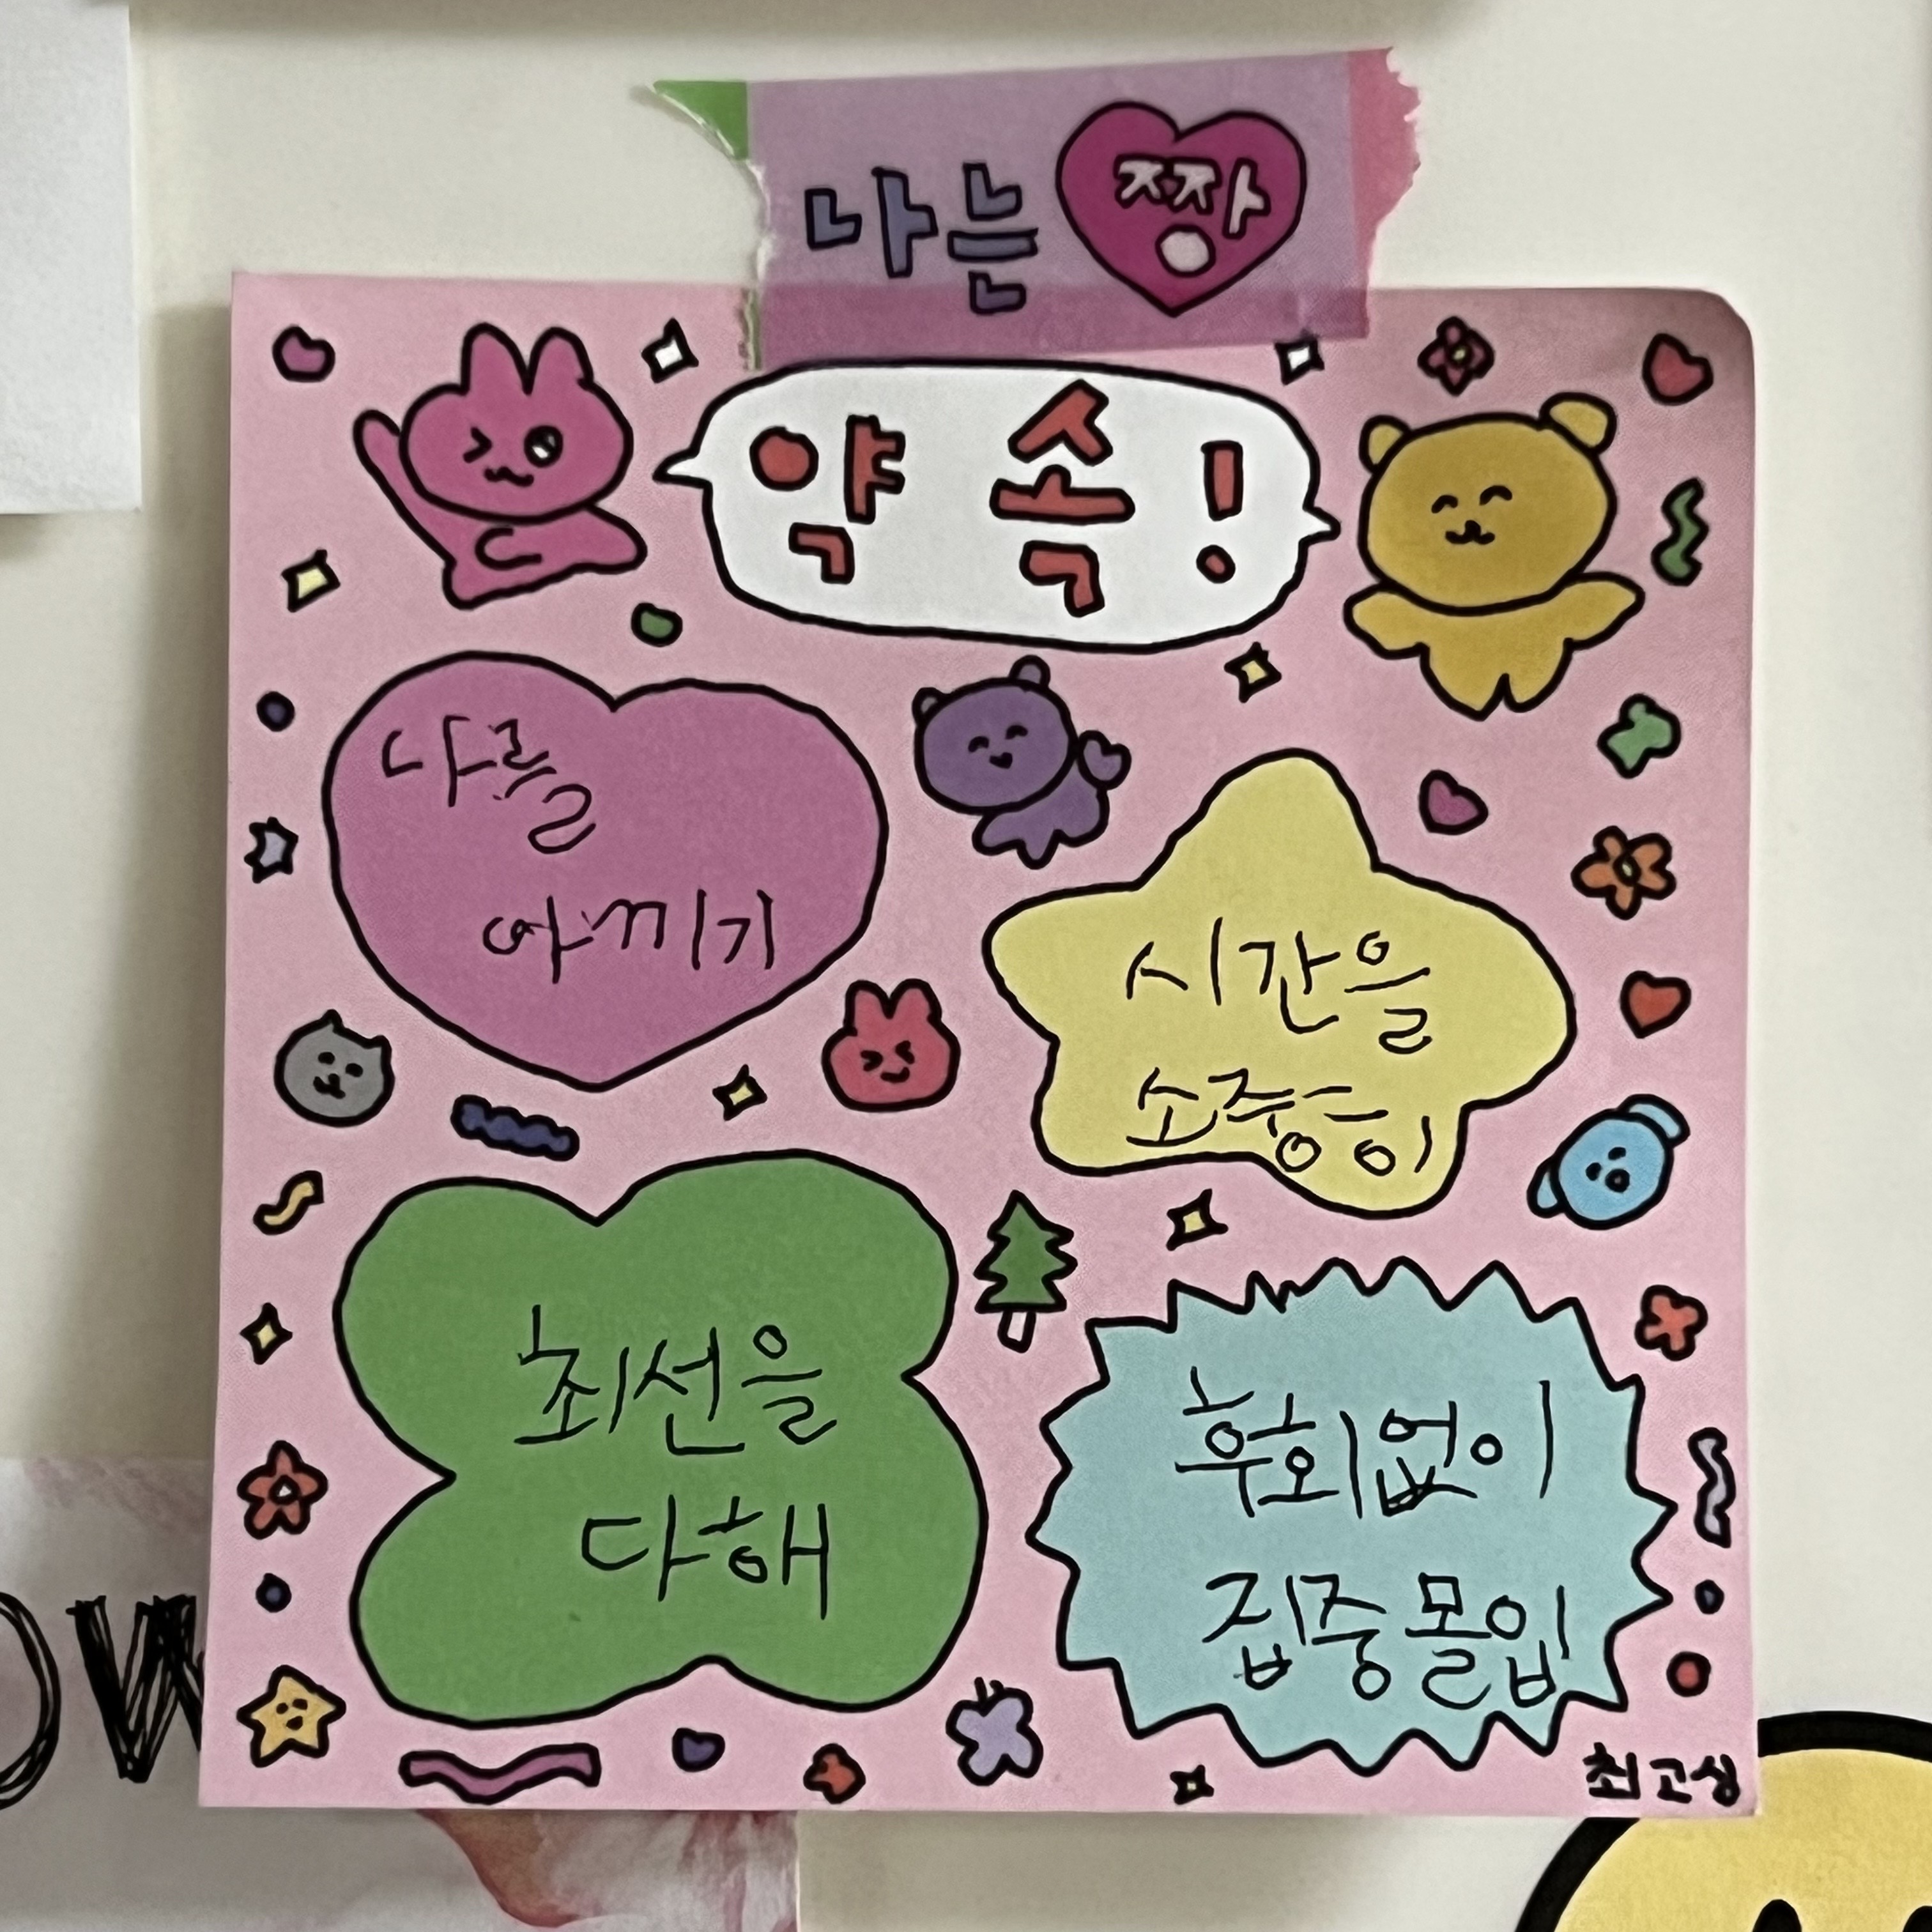 나는 짱
약속!
나를
아끼기
시간을
소중히
최선을
다해
후회없이
집중몰입
최고심
OW